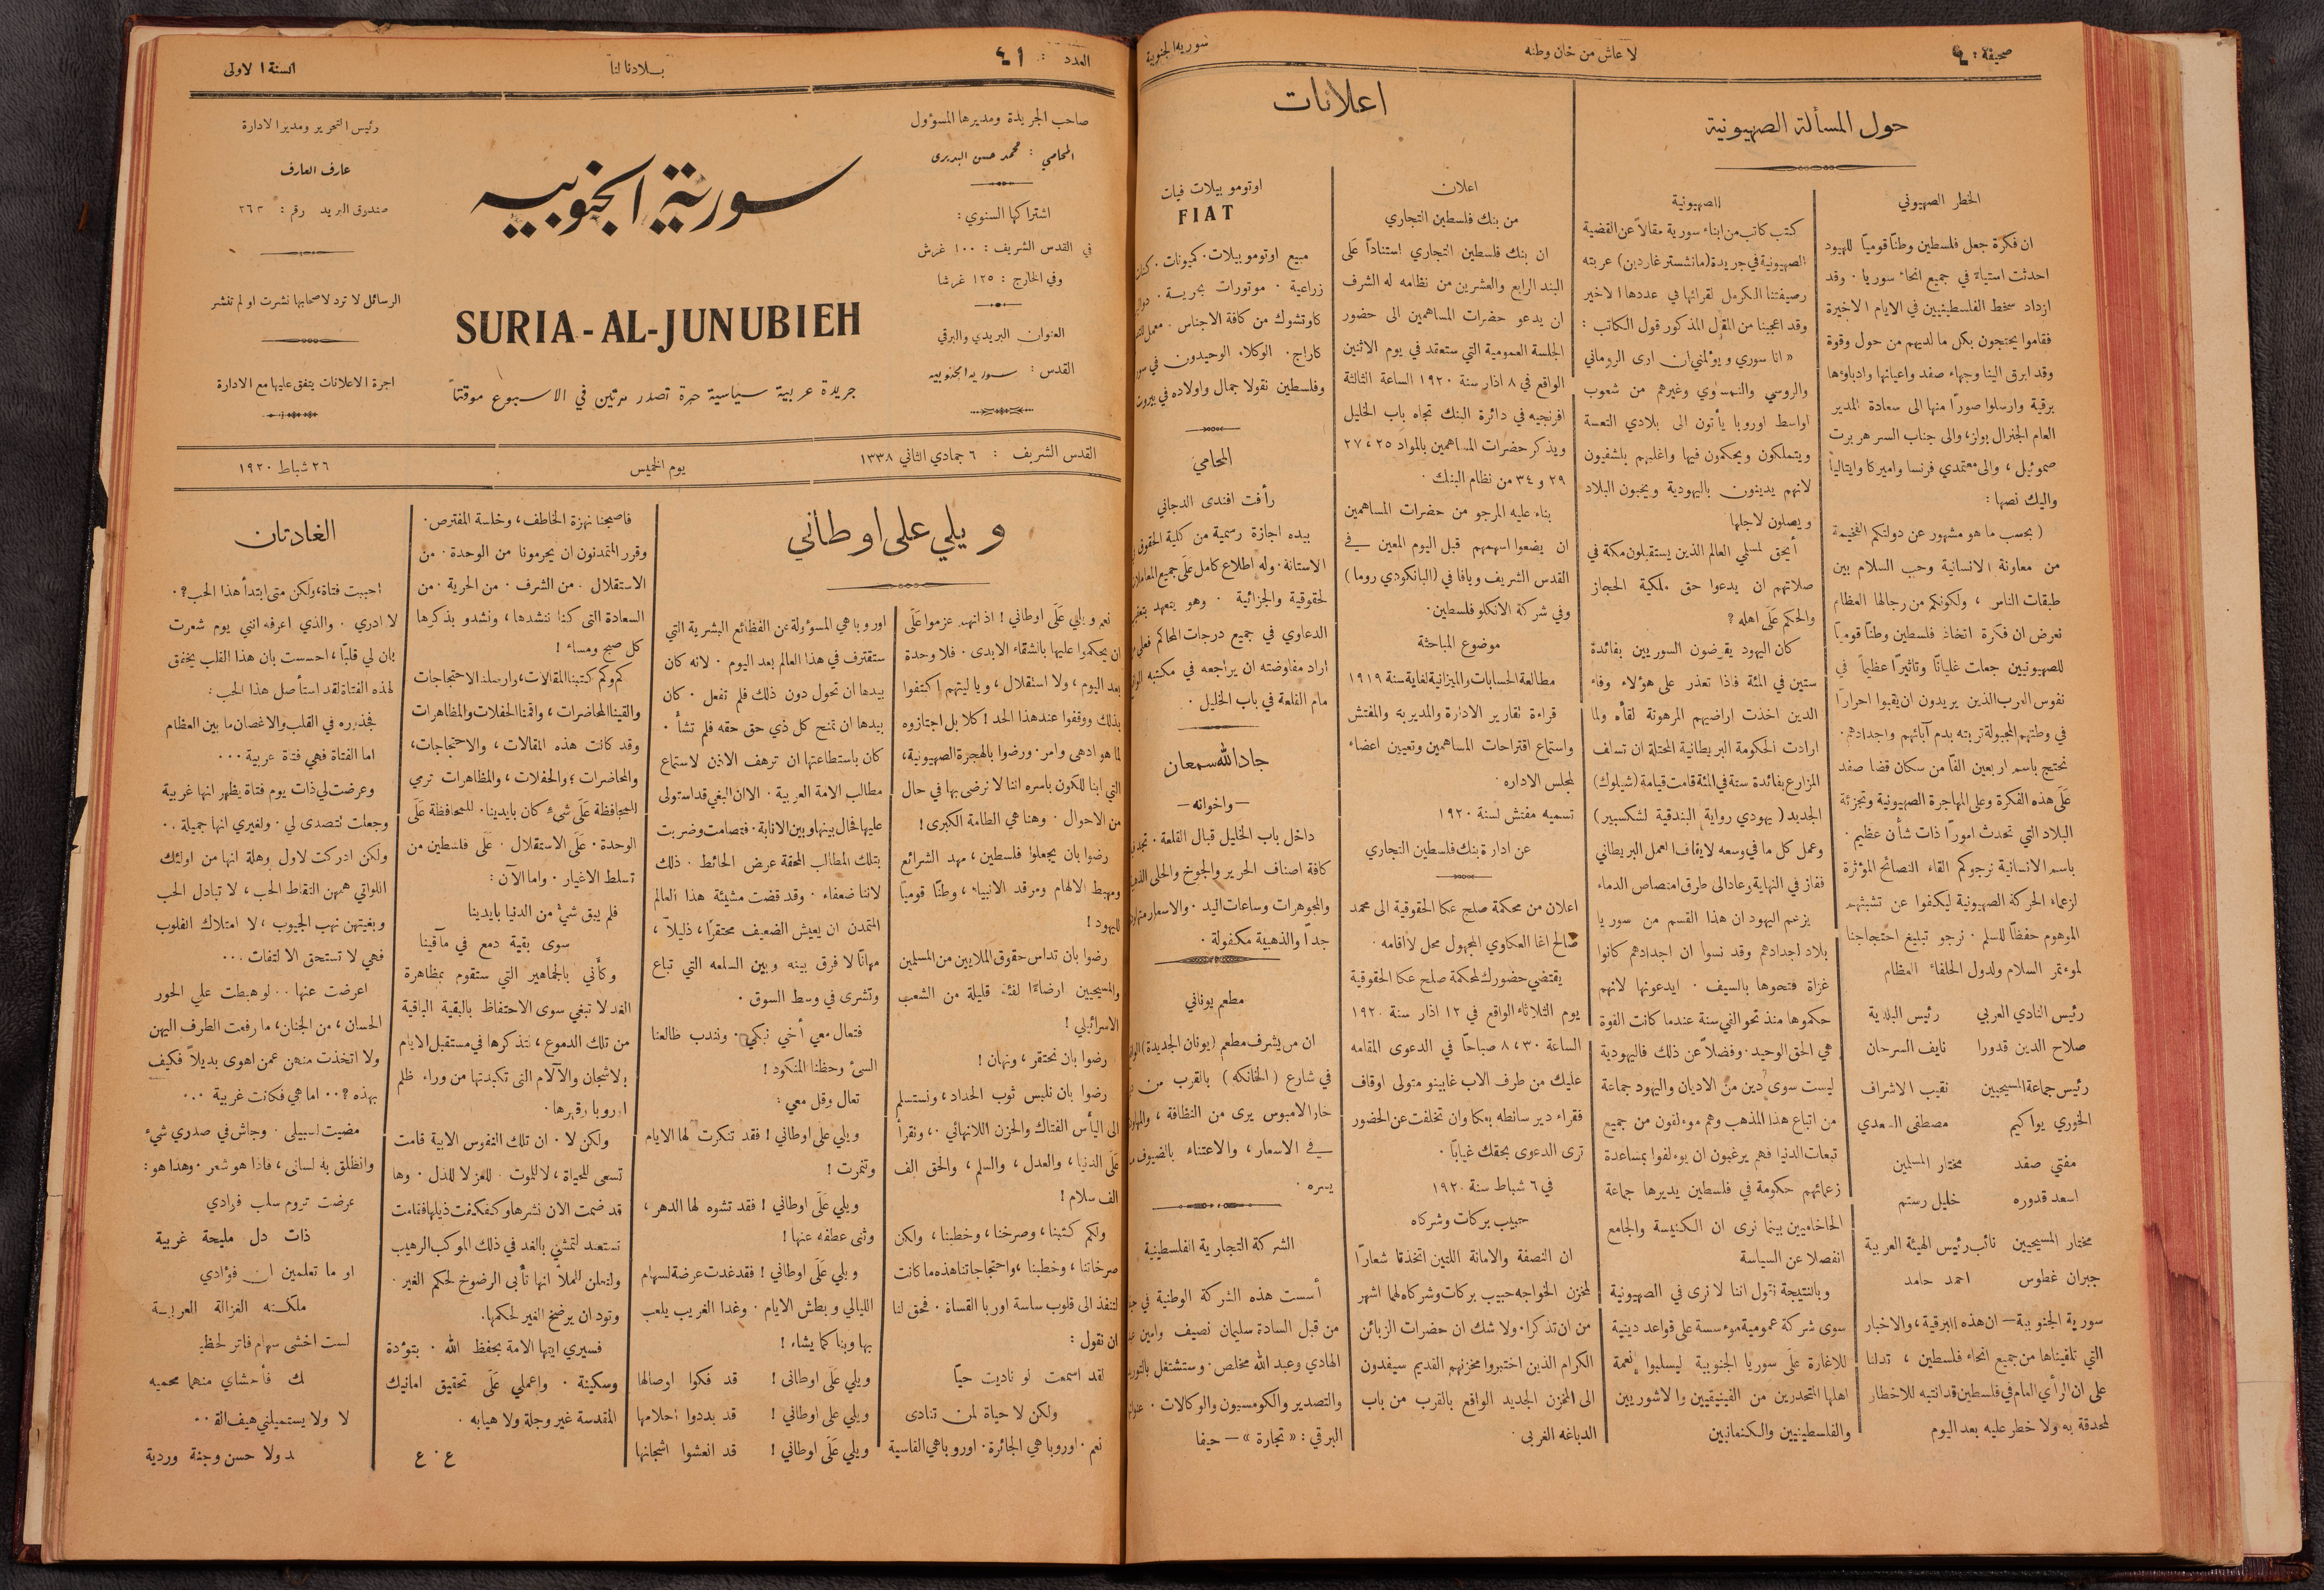 صحيفة : ٤
لا عاش من خان وطنه
سورية الجنوبية
حول المسألة الصهيونية
الخطر الصهيوني
ان فكرة جعل فلسطين وطنًا قوميًا لليهود
احدثت استياءً في جميع انحاء سوريا ٠ وقد
ازداد سخط الفلسطينيين في الايام الاخيرة
فقاموا يحتجون بكل ما لديهم من حول وقوة
وقد ابرق الينا وجهاء صفد واعيانها وادباؤها
برقية وارسلوا صورًا منها الى سعادة المدير
العام الجنرال بولز، والى جناب السر هربرت
صموئيل ، والى معتمدي فرنسا واميركا وايتاليا
واليك نصها :
( بحسب ما هو مشهور عن دولتكم الفخيمة
من معاونة الانسانية وحب السلام بين
طبقات الناس ، ولكونكم من رجالها العظام
نعرض ان فكرة اتخاذ فلسطين وطنًا قوميًا
للصهيونيين جعلت غليانًا وتاثيرًا عظيمًا في
نفوس العرب الذين يريدون ان يقبوا احرارًا
في وطنهم المجبولة تربته بدم آبائهم واجدادهم٠
نحتج باسم اربعين الفًا من سكان قضا صفد
عَلَى هذه الفكرة وعلى المهاجرة الصهيونية وتجزئة
البلاد التي تحدث امورًا ذات شأن عظيم ٠
باسم الانسانية نرجوكم القاء النصائح المؤثرة
لزعماء الحركة الصهيونية ليكفوا عن تشبثهم
الموهوم حفظًا للسلم ٠ نرجو تبليغ احتجاجنا
لموءتمر السلام ولدول الحلفاء العظام
رئيس النادي العربي رئيس البلدية
صلاح الدين قدورا نايف السرحان
رئيس جماعة المسيحيين نقيب الاشراف
الخوري يواكيم مصطفى السعدي
مفتي صفد مختار المسلمين
اسعد قدوره خليل رستم
مختار المسيحيين نائب رئيس الهيئة العربية
جبران غطوس احمد حامد
سورية الجنوبية — ان هذه البرقية ، والاخبار
التي تلقيناها من جميع انحاء فلسطين ، تدلنا
على ان الرأي العام في فلسطين قد انتبه للاخطار
المحدقة به ولا خطر عليه بعد اليوم
الصهيونية
كتب كاتب من ابناء سورية مقالاً عن القضية
الصهيونية في جريدة (مانشستر غاردين) عربته
رصيفتنا الكرمل لقرائها في عددها الاخير
وقد اعجبنا من المقل المذكور قول الكاتب :
« انا سوري ويؤلمني ان ارى الروماني
والروسي والنمسوي وغيرهم من شعوب
اواسط اوروبا يأتون الى بلادي التعسة
ويتملكون ويحكمون فيها واغلبهم بلشفيون
لانهم يدينون باليهودية ويحبون البلاد
ويصلون لاجلها
أيحق لمسلي العالم الذين يستقبلون مكة في
صلاتهم ان يدعوا حق ملكية الحجاز
والحكم عَلَى اهله ؟
كان اليهود يقرضون السوريين بفائدة
ستين في المئة فاذا تعذر على هؤلاء وفاء
الدين اخذت اراضيهم المرهونة لقاءه ولما
ارادت الحكومة البريطانية المحتلة ان تسلف
المزارع بفائدة ستة في المئة قامت قيامة (شيلوك)
الجديد ( يهودي رواية البندقية لشكسبير )
وعمل كل ما في وسعه لايقاف العمل البريطاني
ففاز في النهاية وعاد الى طرق امتصاص الدماء
يزعم اليهود ان هذا القسم من سوريا
بلاد اجدادهم وقد نسوا ان اجدادهم كانوا
غزاة فتحوها بالسيف ٠ ايدعونها لانهم
حكموها منذ نحو الفي سنة عندما كانت القوة
هي الحق الوحيد ٠ وفضلاً عن ذلك فاليهودية
ليست سوى دين من الاديان واليهود جماعة
من اتباع هذا المذهب وهم موءلفون من جميع
تبعات الدنيا فهم يرغبون ان يوءلفوا بمساعدة
زعمائهم حكومة في فلسطين يديرها جماعة
الحاخاميين بينما نرى ان الكنيسة والجامع
انفصلا عن السياسة
وبالنتيجة نقول اننا لا نرى في الصهيونية
سوى شركة عمومية موءسسة على قواعد دينية
للاغارة عَلَى سوريا الجنوبية ليسلبوا نعمة
اهلها المتحدرين من الفينيقيين والاشوريين
والفلسطينيين والكنعانيين
اعلانات
اعلان
من بنك فلسطين التجاري
ان بنك فلسطين التجاري استنادًا عَلَى
البند الرابع والعشرين من نظامه له الشرف
ان يدعو حضرات المساهمين الى حضور
الجلسة العمومية التي ستعقد في يوم الاثنين
الواقع في ٨ اذار سنة ١٩٢٠ الساعة الثالثة
افرنجيه في دائرة البنك تجاه باب الخليل
ويذكر حضرات المساهمين بالمواد ٢٥ ، ٢٧
٢٩ و ٣٤ من نظام البنك ٠
بناء عليه المرجو من حضرات المساهمين
ان يضعوا اسهمهم قبل اليوم المعين في
القدس الشريف ويافا في (البانكودي روما )
وفي شركة الانكلو فلسطين٠
موضوع المباحثة
مطالعة الحسابات والميزانية لغاية سنة ١٩١٩
قراءة تقارير الادارة والمديرية والمفتش
واستماع اقتراحات المساهمين وتعيين اعضاء
لمجلس الاداره ٠
تسميه مفتش لسنة ١٩٢٠
عن ادارة بنك فلسطين التجاري
اعلان من محكمة صلح عكا الحقوقية الى محمد
صالح اغا العكاوي المجهول محل لاقامه ٠
يقتضي حضورك لمحكمة صلح عكا الحقوقية
يوم الثلاثاء الواقع في ١٢ اذار سنة ١٩٢٠
الساعة ٨،٣٠ صباحًا في الدعوى المقامه
عليك من طرف الاب غابينو متولى اوقاف
فقراء دير سانطه بعكا وان تخلفت عن الحضور
ترى الدعوى بحقك غيابًا ٠
في ٦ شباط سنة ١٩٢٠
حبيب بركات وشركاه
ان النصفة والامانة اللتين اتخذتا شعارًا
لمخزن الخواجه حبيب بركات وشركاه لهما اشهر
من ان تذكرا٠ ولا شك ان حضرات الزبائن
الكرام الذين اختبروا مخزنهم القديم سيفدون
الى المخزن الجديد الواقع بالقرب من باب
الدباغه الغربى ٠
اوتوموبيلات فيات
FIAT
مبيع اوتوموبيلات٠ كميونات ٠
زراعية ٠ موتورات بحرية ٠
كاوتشوك من كافة الاجناس ٠ معمل
كاراج ٠ الوكلاء الوحيدون في
وفلسطين نقولا جمال واولاده في بيروت
المحامي
رأفت افندى الدجاني
بيده اجازة رسمية من كلية الحقوق
الاستانة ٠ وله اطلاع كامل عَلَى جميع المعاملات
لحقوقية والجزائية ٠ وهو يتعهد
الدعاوي في جميع درجات المحاكم فعلى
اراد مفاوضته ان يراجعه في مكتبه
مام القلعة في باب الخليل ٠
جاد الله سمعان
—واخوانه—
داخل باب الخليل قبال القلعة ٠
كافة اصناف الحرير والجوخ والحلى
والمجوهرات وساعات اليد ٠ والاسعار
جدًا والذهبية مكفولة ٠
مطعم يوناني
ان من يشرف مطعم (يونان الجديدة)
في شارع ( الخانكه ) بالقرب من
خار الامبوس يرى من النظافة ،
في الاسعار ، والاعتناء بالضيوف
يسره ٠
الشركة التجارية الفلسطينية
أسست هذه الشركة الوطنية في
من قبل السادة سليمان نصيف وامين
الهادي وعبد الله مخلص ٠ وستشتغل
والتصدير والكومسيون والوكالات ٠
البرقي : « تجارة » — حيفا
العدد : ٤١
بلادنا لنا
السنة الاولى
صاحب الجريدة ومديرها المسؤول
المحامي : محمد حسن البديرى
اشتراكها السنوي :
في القدس الشريف : ١٠٠ غرش
وفي الخارج : ١٢٥ غرشا
العنوان البريدي والبرقي
القدس : سورية الجنوبيه
سورية الجنوبيه
SURIA-AL-JUNUBIEH
جريدة عربية سياسية حرة تصدر مرتين في الاسبوع موقتًا
رئيس التحرير ومدير الادارة
عارف العارف
صندوق البريد رقم : ٢٦٣
الرسائل لا ترد لاصحابها نشرت او لم تنشر
اجرة الاعلانات يتفق عليها مع الادارة
القدس الشريف : ٦ جمادي الثاني ١٣٣٨
يوم الخميس
٢٦ شباط ١٩٢٠
ويلي على اوطاني
نعم ويلي عَلَى اوطاني ! اذ انهم عزموا عَلَى
ان يحكموا عليها بالشقاء الابدى ٠ فلا وحدة
بعد اليوم ، ولا استقلال ، ويا ليتهم اكتفوا
بذلك ووقفوا عند هذا الحد ! كلا بل اجتازوه
لما هو ادهى وامر٠ ورضوا بالهجرة الصهيونية ،
التي ابنا للكون باسره اننا لا نرضى بها في حال
من الاحوال ٠ وهنا هي الطامة الكبرى !
رضوا بان يجعلوا فلسطين ، مهد الشرائع
ومهبط الالهام ومرقد الانبياء ، وطنًا قوميًا
لليهود !
رضوا بان تداس حقوق الملايين من المسلمين
والمسيحيين ارضاءًا لفئة قليلة من الشعب
الاسرائيلي !
رضوا بان نحتقر ، ونهان !
رضوا بان نلبس ثوب الحداد ، ونستسلم
الى اليأس الفتاك والحزن اللانهائي ٠، ونقرأ
عَلَى الدنيا ، والعدل ، والسلم ، والحق الف
الف سلام !
ولكم كتبنا ، وصرخنا ، وخطبنا ، ولكن
صرخاتنا ، وخطبنا ، واحتجاجاتنا هذه ما كانت
لتنفذ الى قلوب ساسة اوربا القساة ٠ فحق لنا
ان نقول :
لقد اسمعت لو ناديت حيًا
ولكن لا حياة لمن تنادى
نعم ٠ اوروبا هي الجائرة ٠ اوروبا هي القاسية
اوروبا هي المسؤولة عن الفظائع البشرية التي
ستقترف في هذا العالم بعد اليوم ٠ لانه كان
بيدها ان تحول دون ذلك فلم تفعل ٠ كان
بيدها ان تمنح كل ذي حق حقه فلم تشأ ٠
كان باستطاعتها ان ترهف الاذن لاستماع
مطالب الامة العربية ٠ الا ان البغي قد استولى
عليها فحال بينها وبين الانابة ٠ فتصامت وضربت
بتلك المطالب المحقة عرض الحائط ٠ ذلك
لاننا ضعفاء ٠ وقد قضت مشيئة هذا العالم
المتمدن ان يعيش الضعيف محتقرًا ، ذليلاً ،
مهانًا لا فرق بينه وبين السلعه التي تباع
وتشرى في وسط السوق ٠
فتعال معي أخي نبكي ٠ ونندب طالعنا
السئ وحظنا المنكود !
تعال وقل معي :
ويلي على اوطاني ! فقد تنكرت لها الايام
وتنمرت !
ويلي عَلَى اوطاني ! فقد تشوه لها الدهر ،
وثنى عطفه عنها !
ويلي عَلَى اوطاني ! فقد غدت عرضة لسهام
الليالي وبطش الايام ٠ وغدا الغريب يلعب
بها وبنا كما يشاء !
ويلي عَلَى اوطانى ! قد فكوا اوصالها
ويلي على اوطاني ! قد بددوا احلامها
ويلي عَلَى اوطاني ! قد انعشوا اشجانها
فاصبحنا نهزة الخاطف ، وخلسة المفترص٠
وقرر المتمدنون ان يحرمونا من الوحدة ٠ من
الاستقلال ٠ من الشرف ٠ من الحرية ٠ من
السعادة التى كنا ننشدها ، ونشدو بذكرها
كل صبح ومساء !
كم وكم كتبنا المقالات ، وارسلنا الاحتجاجات
والقينا المحاضرات ، واقمنا الحفلات والمظاهرات
وقد كانت هذه المقالات ، والاحتجاجات ،
والمحاضرات ، والحفلات ، والمظاهرات ترمي
للمحافظة عَلَى شيء كان بايدينا ٠ للمحافظة عَلَى
الوحدة ٠ عَلَى الاستقلال ٠ عَلَى فلسطين من
تسلط الاغيار ٠ واما الآن :
فلم يبق شيٌ من الدنيا بايدينا
سوى بقية دمع في مآقينا
وكأني بالجماهير التي ستقوم بمظاهرة
الغد لا تبغي سوى الاحتفاظ بالبقية الباقية
من تلك الدموع ، لتذكرها في مستقبل الايام
بالاشجان والآلام التى تكبدتها من وراء ظلم
اوروبا وقهرها٠
ولكن لا ٠ ان تلك النفوس الابية قامت
تسعى للحياة ، لا للموت ٠ للعز لا للذل ٠ وها
قد ضمت الان نشرها وكفكفت ذيلها فقامت
تستعد لتمشي بالغد في ذلك الموكب الرهيب
ولتعلن للملأ انها تأبى الرضوخ لحكم الغير ٠
وتود ان يرضخ الغير لحكمها٠
فسيري ايتها الامة بحفظ الله ٠ بتوءدة
وسكينة ٠ واعملي عَلَى تحقيق امانيك
المقدسة غير وجلة ولا هيابه ٠
ع ٠ ع
الغادتان
احببت فتاة ، ولكن متى ابتدأ هذا الحب ؟ ٠
لا ادري ٠ والذي اعرفه انني يوم شعرت
بان لي قلبًا ، احسست بان هذا القلب يخفق
لهذه الفتاة لقد استأصل هذا الحب :
فجذوره في القلب والاغصان ما بين العظام
اما الفتاة فهي فتاة عربية ٠٠٠
وعرضت لي ذات يوم فتاة يظهر انها غريبة
وجعلت تتصدى لي ٠ ولغيري انها جميلة ٠٠
ولكن ادركت لاول وهلة انها من اولئك
اللواتي همهن التقاط الحب ، لا تبادل الحب
وبغيتهن نهب الجيوب ، لا امتلاك القلوب
فهي لا تستحق الالتفات ٠٠٠
اعرضت عنها ٠٠ لو هبطت علي الحور
الحسان ، من الجنان ، ما رفعت الطرف اليهن
ولا اتخذت منهن عمن اهوى بديلاً فكيف
بهذه ؟ ٠٠ اما هي فكانت غريبة ٠٠٠
مضيت لسبيلى ٠ وجاش في صدري شيء
وانطلق به لسانى ، فاذا هو شعر ٠ وهذا هو :
عرضت تروم سلب فوادي
ذات دل مليحة غريبة
او ما تعلمين ان فؤادي
ملكته الغزالة العربية
لست اخشى سهام فاتر لحظـ
ـك فأحشاي منهما محميه
لا ولا يستميلني هيف القـ ٠٠
ـد ولا حسن وجنة وردية